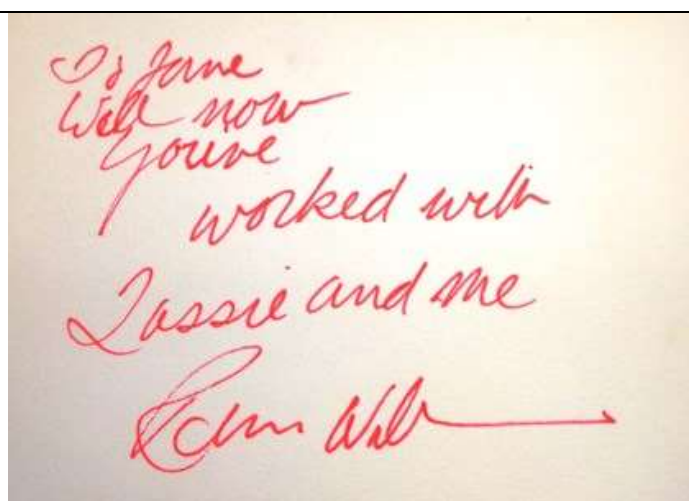 To Jane
Well now
you've
worked with
Lassie and me